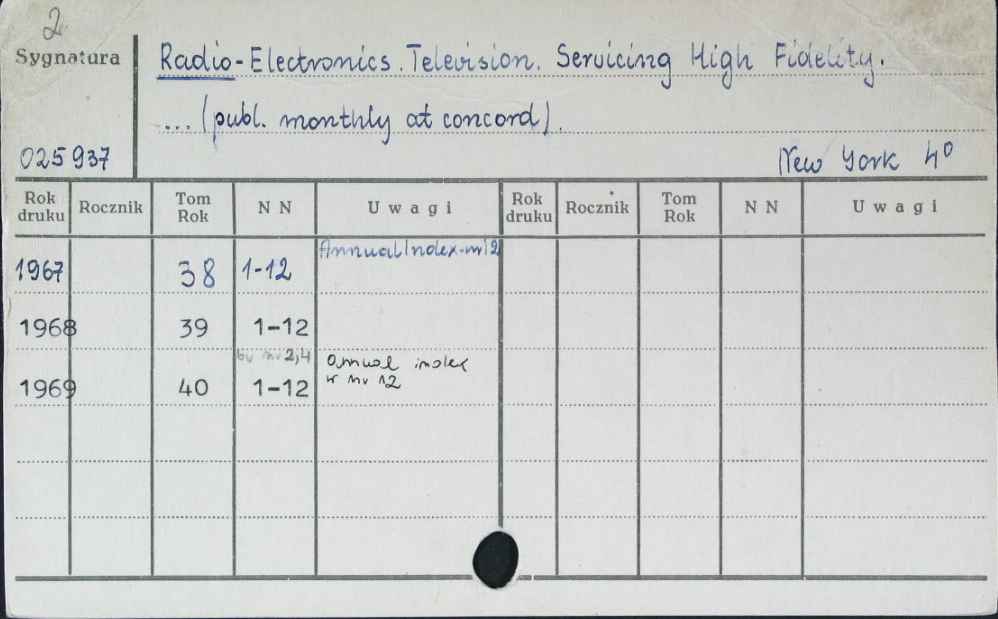 2
Sygnatura
Radio-Electronics. Television. Servicing High Fidelity.
... (publ. monthly at concord).
025937
New York 4⁰
Rok druku Rocznik Tom Rok N N Uwagi Rok druku Rocznik Tom Rok N N Uwagi
Annual Index-nr 12
1967 38 1-12
1968 39 1-12
nr 2,4 annual index
1969 40 1-12 w nr 12